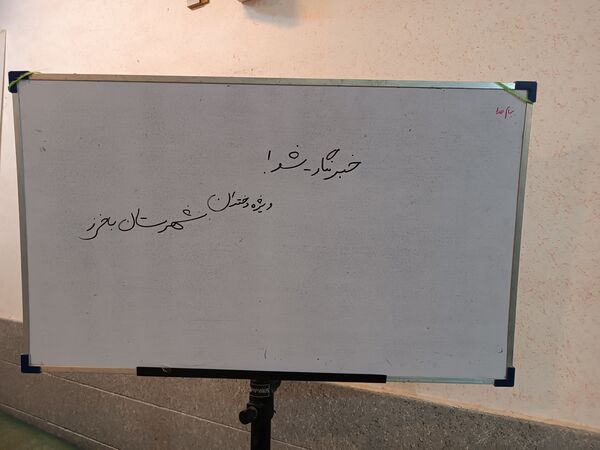 بنام خدا
خبرنگار شو!
ویژه دختران شهرستان باخرز